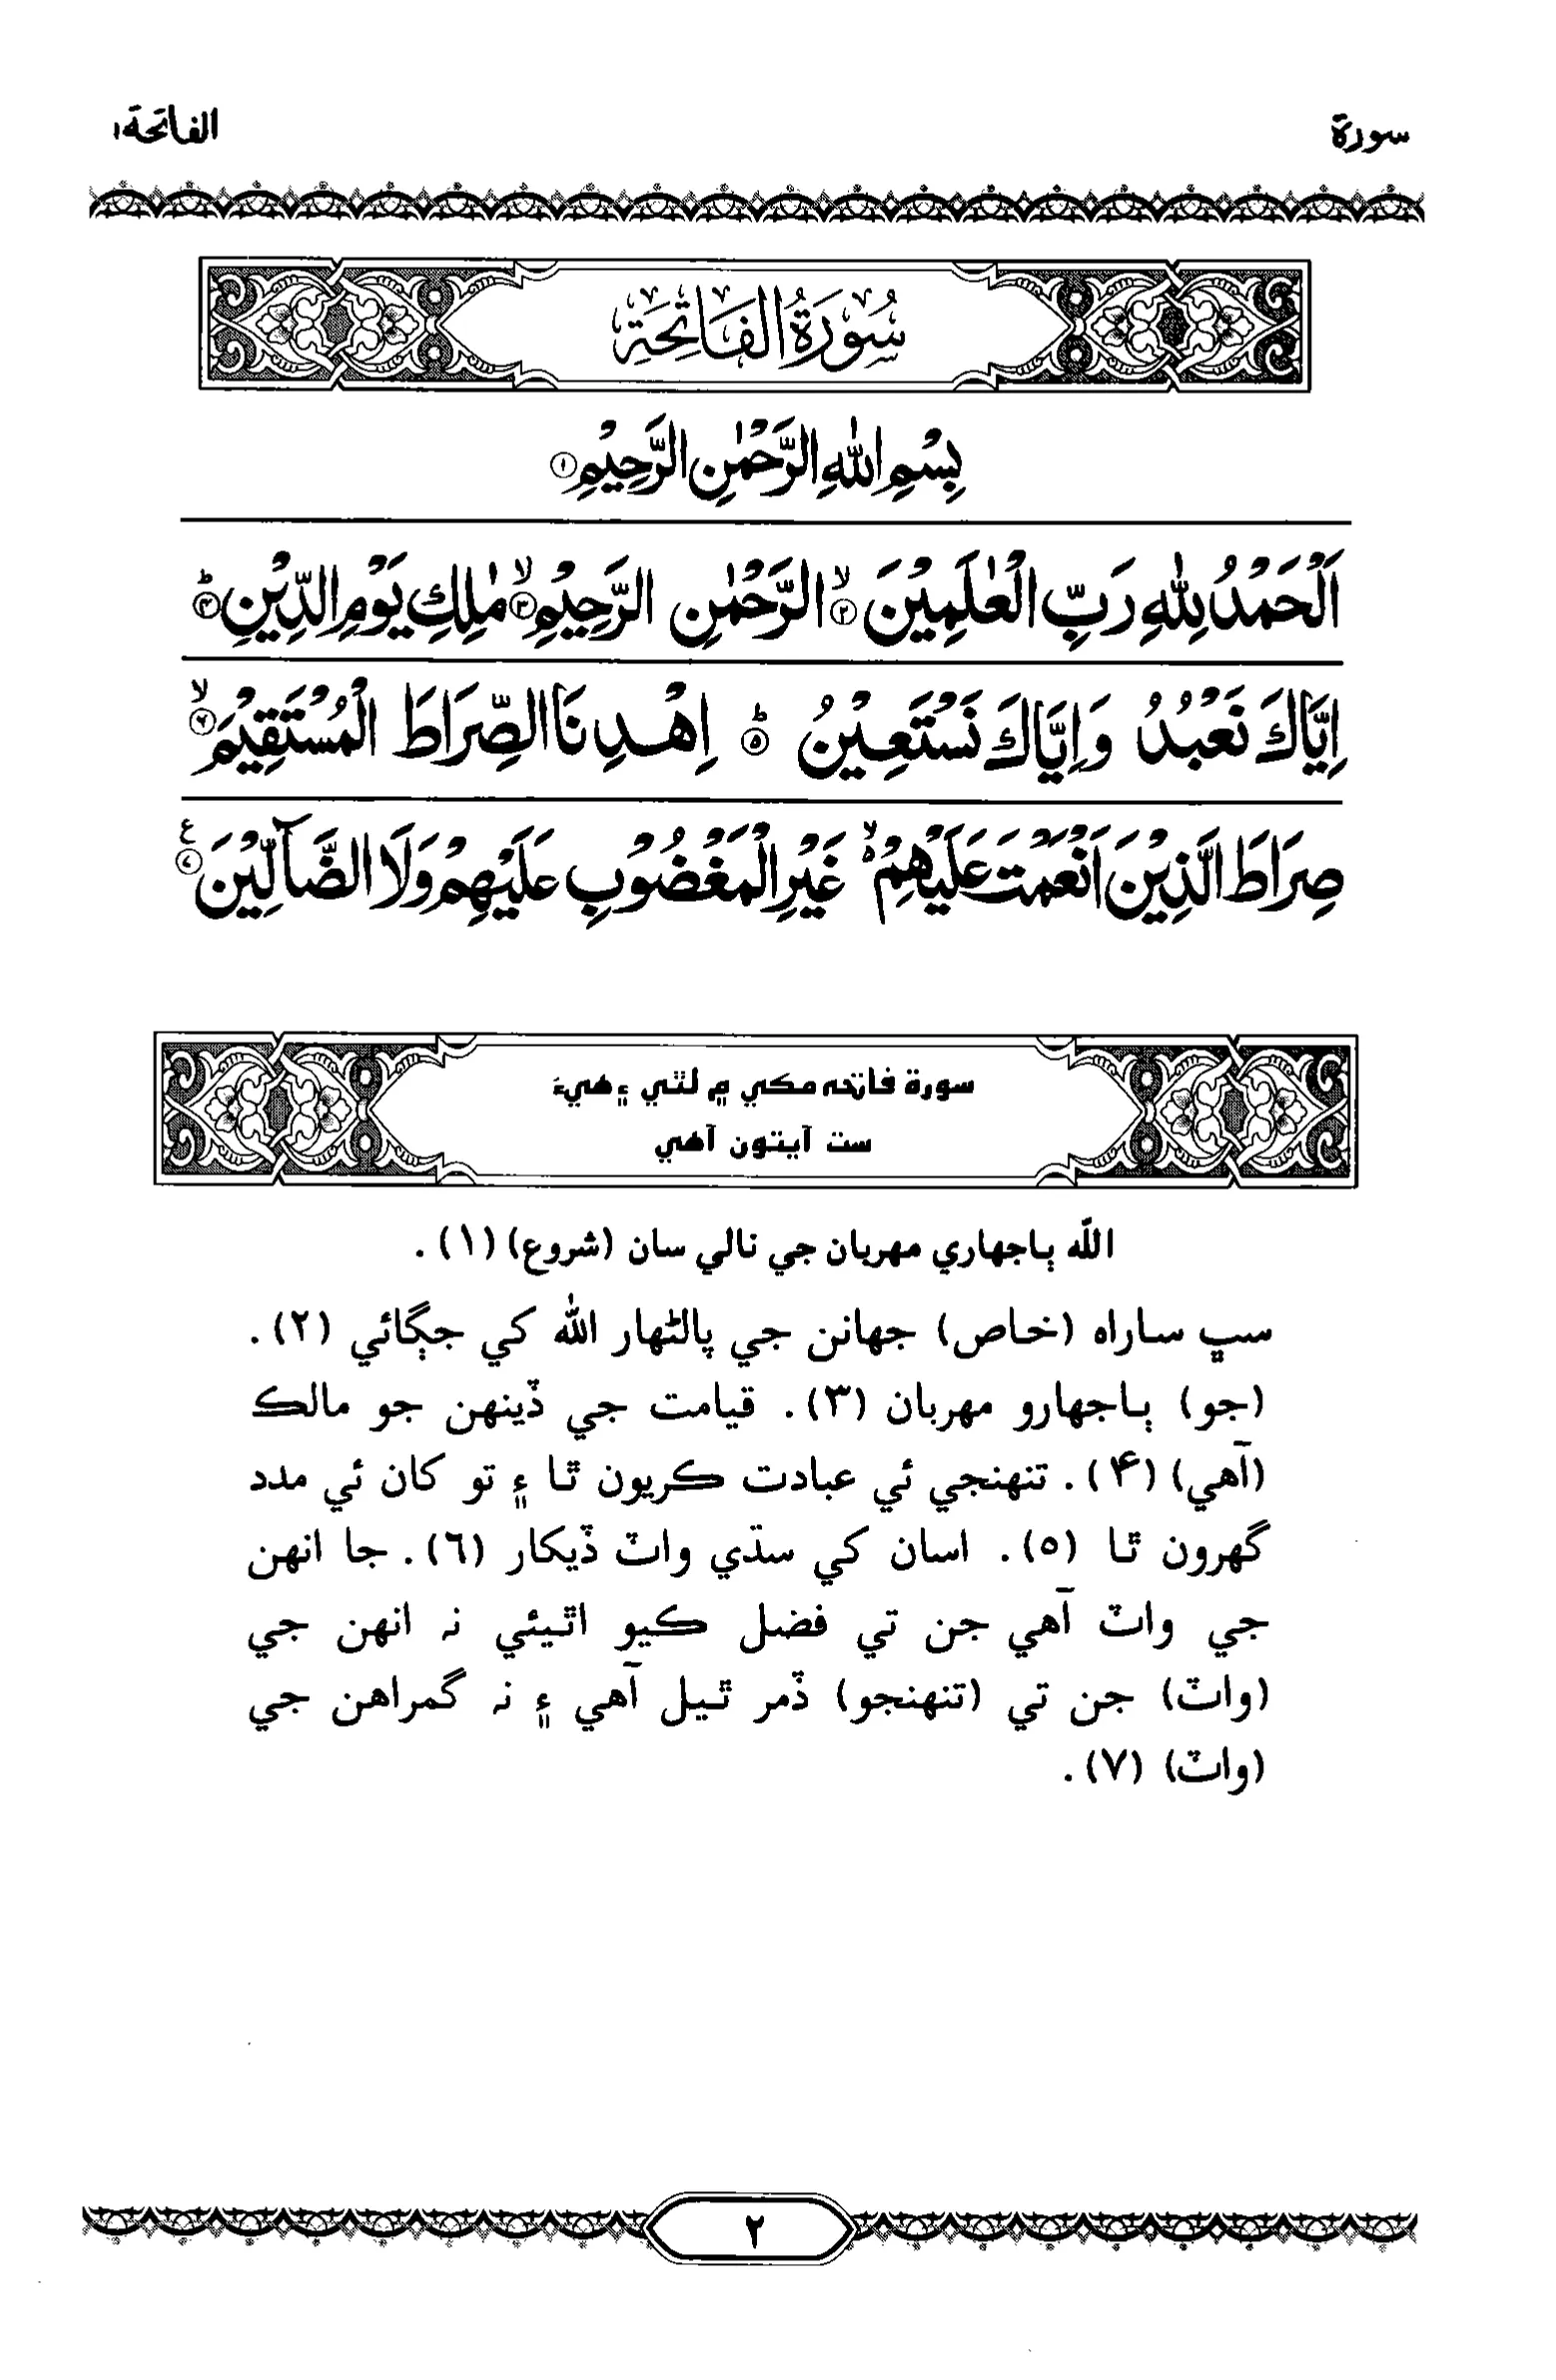 سورة الفاتحة١
سُوْرَةُ الْفَاتِحَةِ
بِسْمِ اللّٰهِ الرَّحْمٰنِ الرَّحِيْمِ ۝١
اَلْحَمْدُ لِلّٰهِ رَبِّ الْعٰلَمِيْنَ ۝٢ۙ الرَّحْمٰنِ الرَّحِيْمِ ۝٣ۙ مٰلِكِ يَوْمِ الدِّيْنِ ۝٤ؕ
اِيَّاكَ نَعْبُدُ وَاِيَّاكَ نَسْتَعِيْنُ ۝٥ؕ اِهْدِنَا الصِّرَاطَ الْمُسْتَقِيْمَ ۝٦ۙ
صِرَاطَ الَّذِيْنَ اَنْعَمْتَ عَلَيْهِمْ ۙ۬ غَيْرِ الْمَغْضُوْبِ عَلَيْهِمْ وَلَا الضَّآلِّيْنَ ۝٧ۧ
سورة فاتحه مڪي ۾ لٿي ۽ هيءَ
ست آيتون آهي
الله ٻاجهاري مهربان جي نالي سان (شروع) (١).
سڀ ساراه (خاص) جهانن جي پالڻهار الله کي جڳائي (٢).
(جو) ٻاجهارو مهربان (٣). قيامت جي ڏينهن جو مالڪ
(آهي) (۴). تنهنجي ئي عبادت ڪريون ٿا ۽ تو کان ئي مدد
گهرون ٿا (٥). اسان کي سڌي واٽ ڏيکار (٦). جا انهن
جي واٽ آهي جن تي فضل ڪيو اٿيئي نہ انهن جي
(واٽ) جن تي (تنهنجو) ڏمر ٿيل آهي ۽ نہ گمراهن جي
(واٽ) (٧).
٢